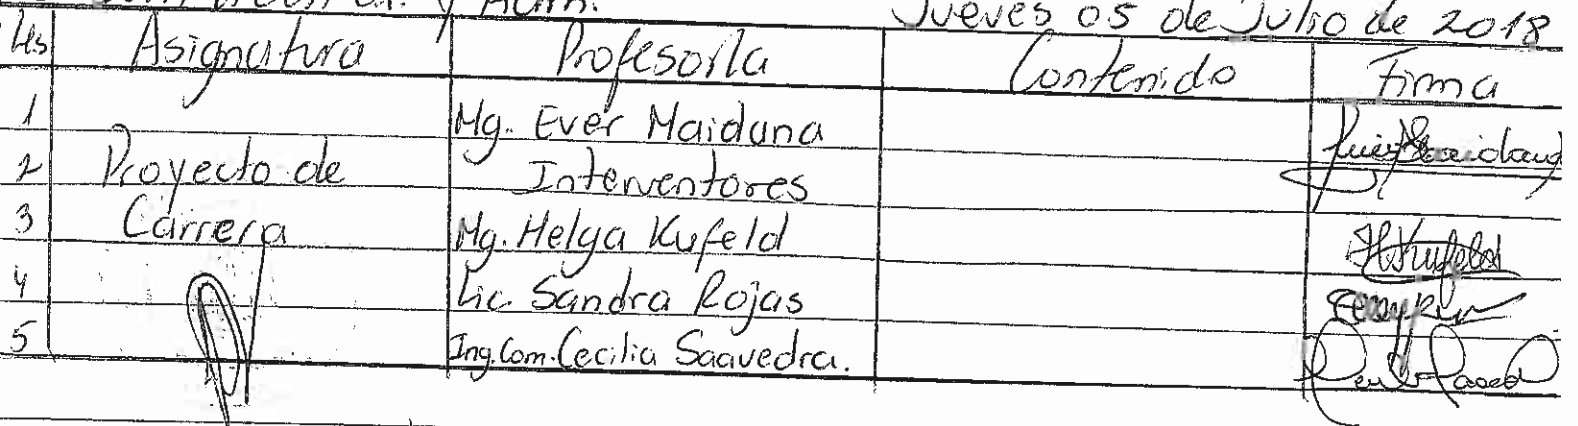 y Adm. Jueves 05 de Julio de 2018
Hs Asignatura Profesor/a Contenido Firma
1 Mg. Ever Maidana
2 Proyecto de Interventores
3 Carrera Mg. Helga Kufeld HKufeld
4 Lic. Sandra Rojas
5 Ing. Com. Cecilia Saavedra.